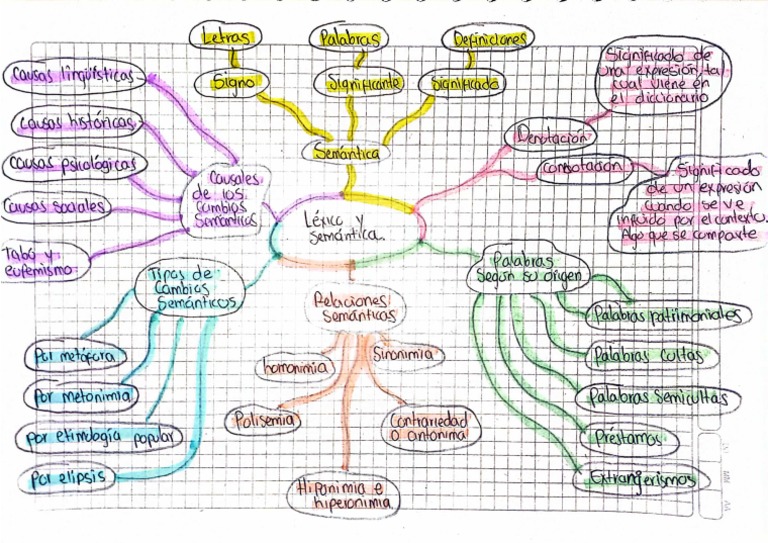 Letras
Palabras
Definiciones
Signo
Significante
Significado
Semántica
Significado de
una expresión tal
cual viene en
el diccionario
Denotación
Connotación
Significado
de un expresión
cuando se ve
influido por el contexto.
Algo que se comparte
Causas lingüísticas
Causas históricas
Causas psicológicas
Causas sociales
Tabú y
eufemismo
Causales
de los
Cambios
Semánticos
Léxico y
Semántica
Tipos de
Cambios
Semánticos
Por metáfora
Por metonimia
Por etimología popular
Por elipsis
Relaciones
Semánticas
homonimia
Sinonimia
Polisemia
Contrariedad
o antonimia
Hiponimia e
hiperonimia
Palabras
Según su origen
Palabras patrimoniales
Palabras cultas
Palabras Semicultas
Préstamos
Extranjerismos